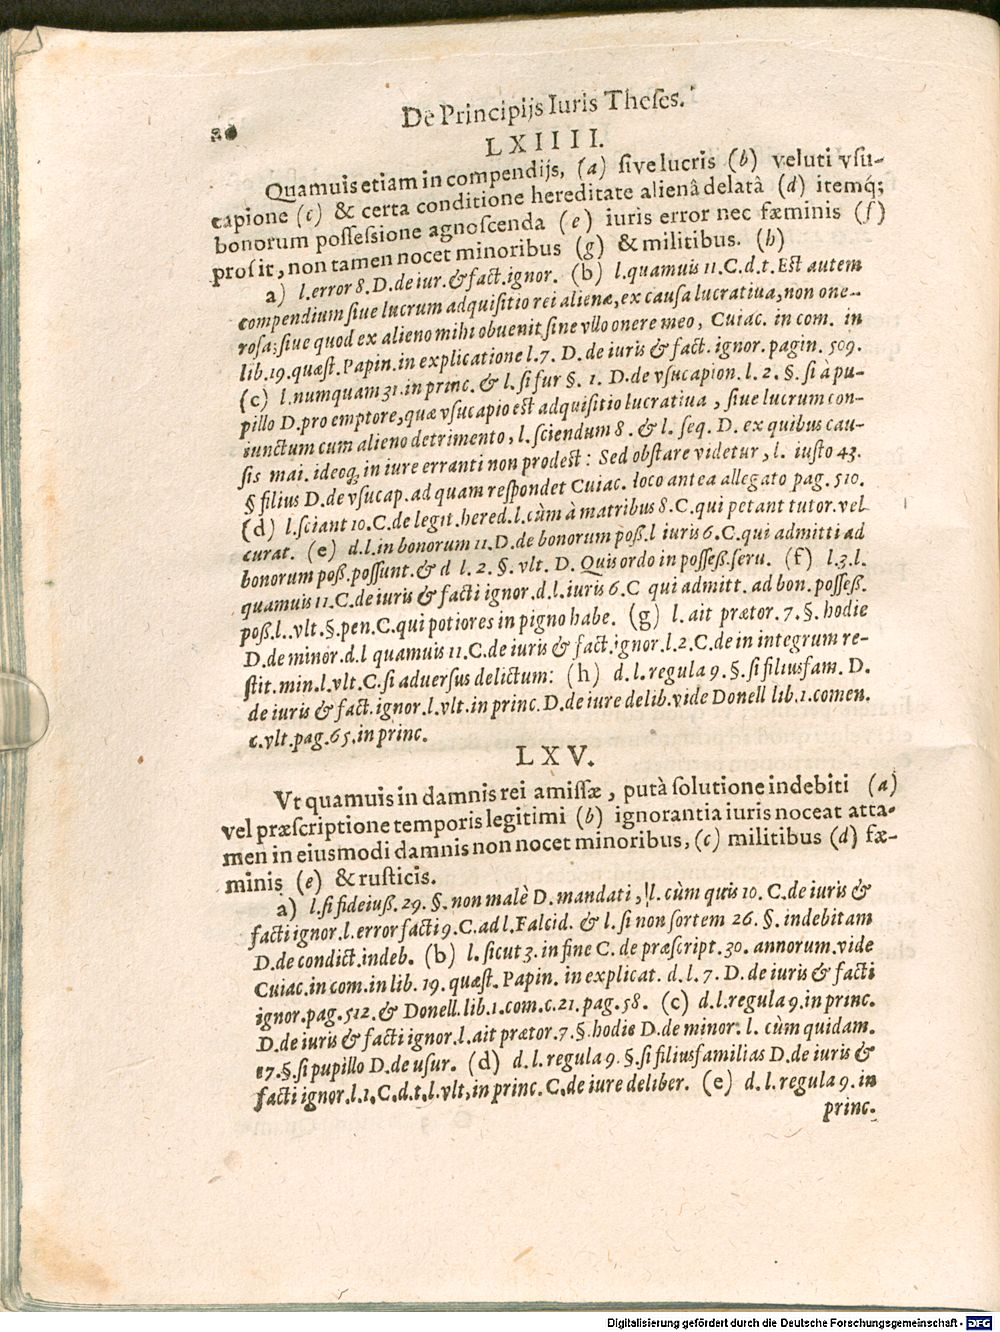 De Principijs Iuris Theses.
LXIIII.
Quamuis etiam in compendijs, (a) siue lucris (b) veluti vsu-
capione (c) & certa conditione hereditate alienâ delatâ (d) itemq́;
bonorum possessione agnoscenda (e) iuris error nec fæminis (f)
prosit, non tamen nocet minoribus (g) & militibus. (h)
a) l. error 8. D. de iur. & fact. ignor. (b) l. quamuis 11. C. d. t. Est autem
compendium siue lucrum adquisitio rei alienæ, ex causa lucratiua, non one-
rosa; siue quod ex alieno mihi obuenit sine vllo onere meo, Cuiac. in com. in
lib. 19. quæst. Papin. in explicatione l. 7. D. de iuris & fact. ignor. pagin. 509.
(c) l. numquam 31. in princ. & l. si fur §. 1. D. de vsucapion. l. 2. §. si à pu-
pillo D. pro emptore, quæ vsucapio est adquisitio lucratiua, siue lucrum con-
iunctum cum alieno detrimento, l. sciendum 8. & l. seq. D. ex quibus cau-
sis mai. ideoq; in iure erranti non prodest: Sed obstare videtur, l. iusto 43.
§ filius D. de vsucap. ad quam respondet Cuiac. loco antea allegato pag. 510.
(d) l. sciant 10. C. de legit. hered. l. cùm à matribus 8. C. qui petant tutor. vel
curat. (e) d. l. in bonorum 11. D. de bonorum poß. l iuris 6. C. qui admitti ad
bonorum poß. possunt. & d l. 2. §. vlt. D. Quis ordo in posseß. seru. (f) l. 3. l.
quamuis 11. C. de iuris & facti ignor. d. l. iuris 6. C qui admitt. ad bon. posseß.
poß. l.. vlt. §. pen. C. qui potiores in pigno habe. (g) l. ait prætor. 7. §. hodie
D. de minor. d. l quamuis 11. C. de iuris & fact. ignor. l. 2. C. de in integrum re-
stit. min. l. vlt. C. si aduersus delictum: (h) d. l. regula 9. §. si filiusfam. D.
de iuris & fact. ignor. l. vlt. in princ. D. de iure delib. vide Donell lib. 1. comen.
c. vlt. pag. 65. in princ.
LXV.
Vt quamuis in damnis rei amissæ, putà solutione indebiti (a)
vel præscriptione temporis legitimi (b) ignorantia iuris noceat atta-
men in eiusmodi damnis non nocet minoribus, (c) militibus (d) fæ-
minis (e) & rusticis.
a) l. si fideiuß. 29. §. non malè D. mandati, l. cùm quis 10. C. de iuris &
facti ignor. l. error facti 9. C. ad l. Falcid. & l. si non sortem 26. §. indebitam
D. de condict. indeb. (b) l. sicut 3. in fine C. de præscript. 30. annorum. vide
Cuiac. in com. in lib. 19. quæst. Papin. in explicat. d. l. 7. D. de iuris & facti
ignor. pag. 512. & Donell. lib. 1. com. c. 21. pag. 58. (c) d. l. regula 9. in princ.
D. de iuris & facti ignor. l. ait prætor. 7. §. hodie D. de minor. l. cùm quidam.
17. §. si pupillo D. de usur. (d) d. l. regula 9. §. si filiusfamilias D. de iuris &
facti ignor. l. 1. C. d. t. l. vlt. in princ. C. de iure deliber. (e) d. l. regula 9. in
princ.
Digitalisierung gefördert durch die Deutsche Forschungsgemeinschaft - DFG